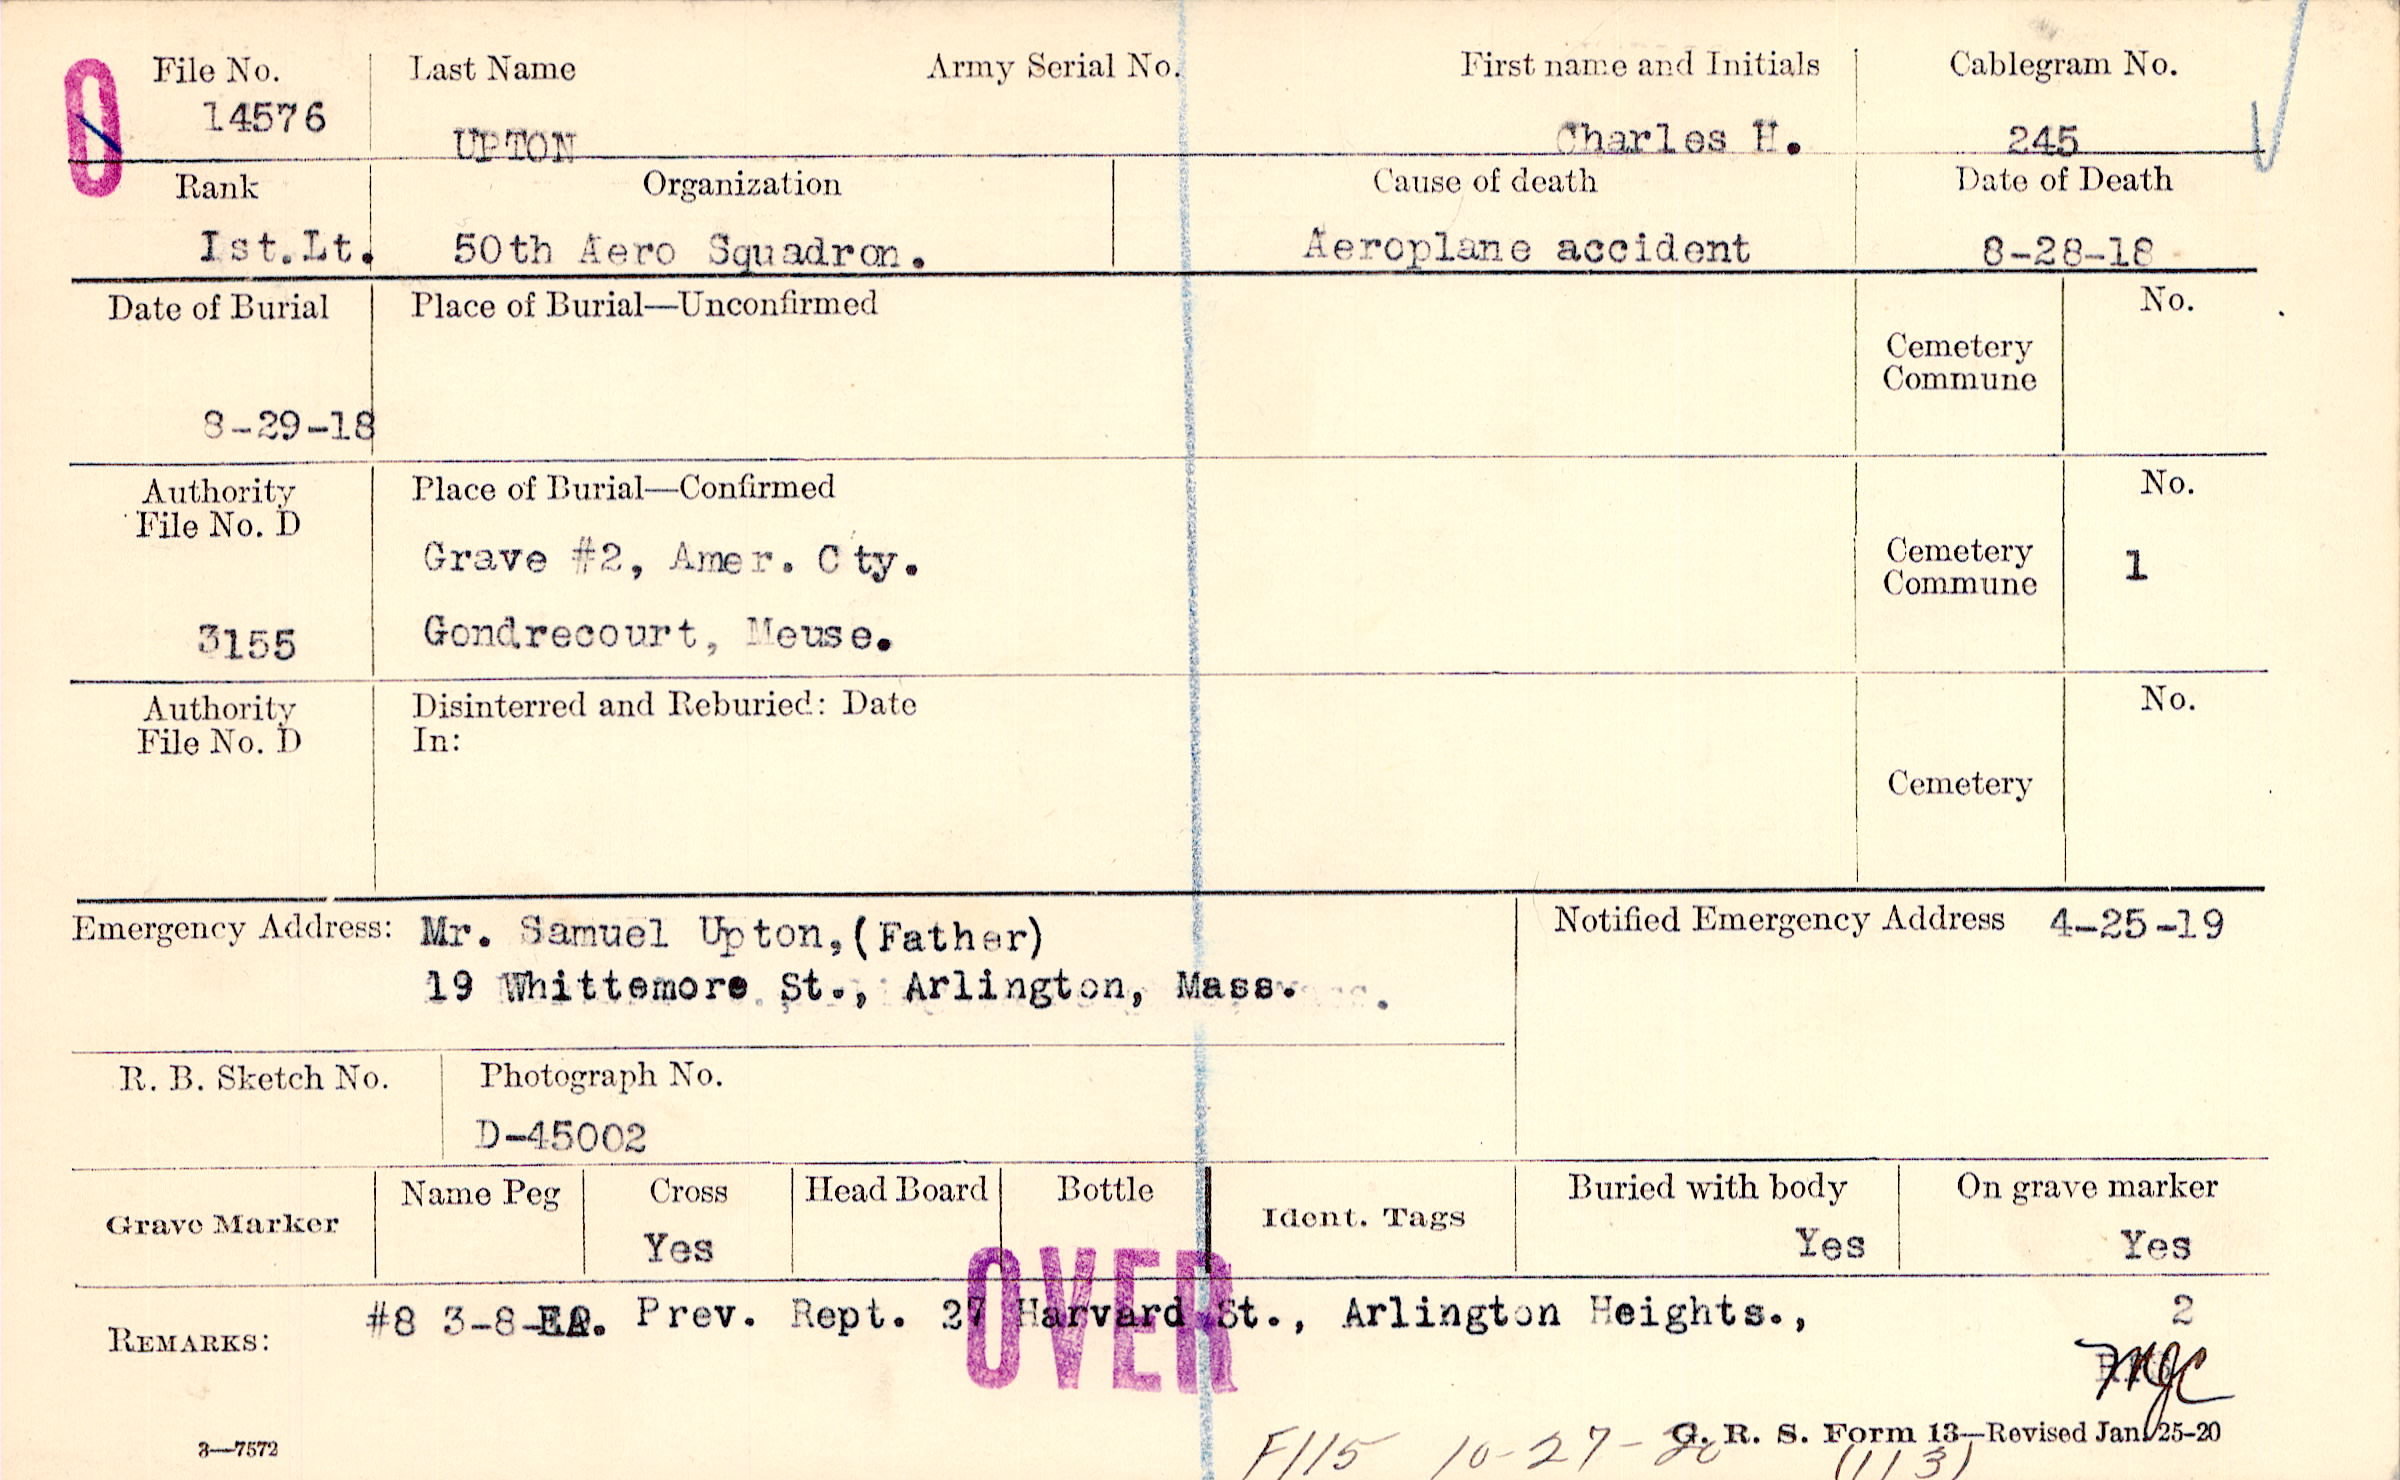 File No. Last Name Army Serial No. First name and Initials Cablegram No.
14576 UPTON Charles H. 245
Rank Organization Cause of death Date of Death
Ist.Lt. 50th Aero Squadron. Aeroplane accident 8-28-18
Date of Burial Place of Burial—Unconfirmed No.
Cemetery
Commune
8-29-18
Authority Place of Burial—Confirmed No.
File No. D
Grave #2, Amer. Cty. Cemetery 1
Commune
3155 Gondrecourt, Meuse.
Authority Disinterred and Reburied: Date No.
File No. D In:
Cemetery
Emergency Address: Mr. Samuel Upton,(Father) Notified Emergency Address 4-25-19
19 Whittemore St., Arlington, Mass.
R. B. Sketch No. Photograph No.
D-45002
Grave Marker Name Peg Cross Head Board Bottle Ident. Tags Buried with body On grave marker
Yes Yes Yes
OVER
REMARKS: #8 3-8- Prev. Rept. 27 Harvard St., Arlington Heights., 2
MJC
3—7572 G. R. S. Form 13—Revised Jan. 25-20
F115 10-27-20 (113)